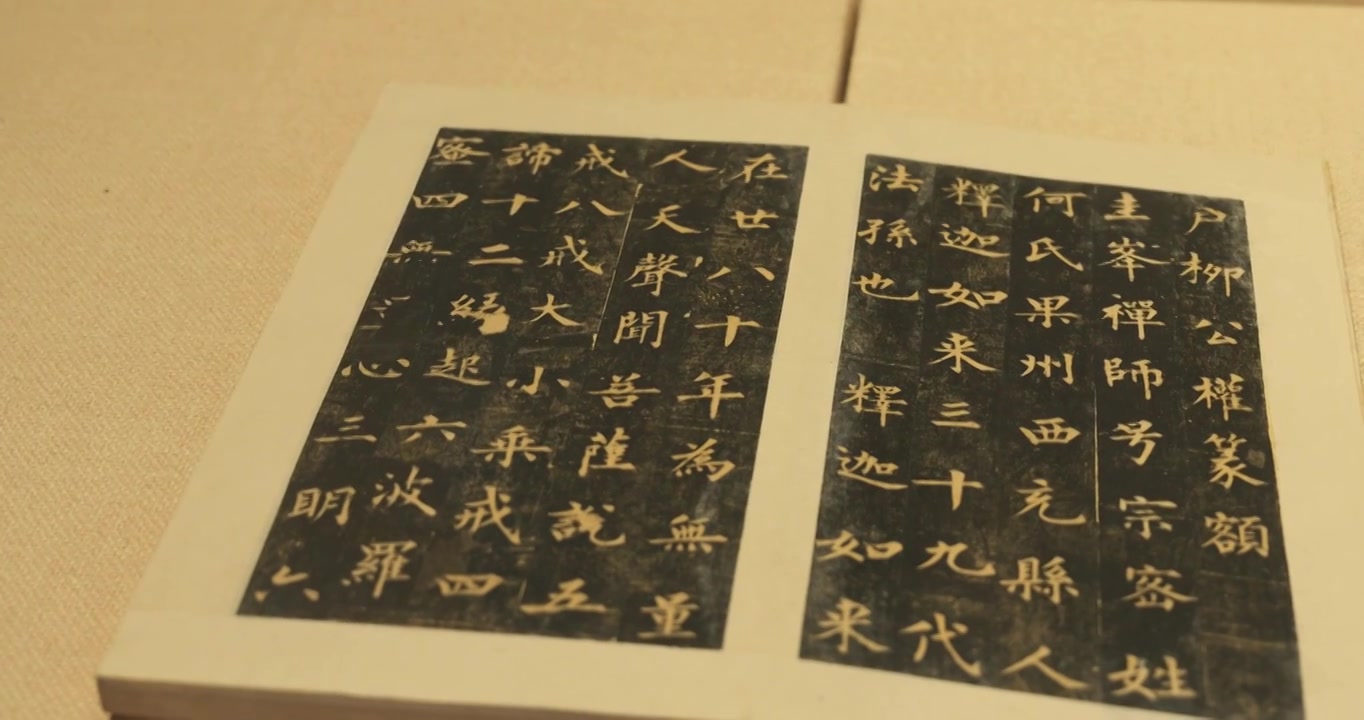 户柳公權篆額
圭峯禪師号宗密姓
何氏果州西充縣人
釋迦如来三十九代
法孫也釋迦如来
在世八十年為無量
人天聲聞菩薩說五
戒八戒大小乗戒四
諦十二緣起六波羅
蜜四無心三明六